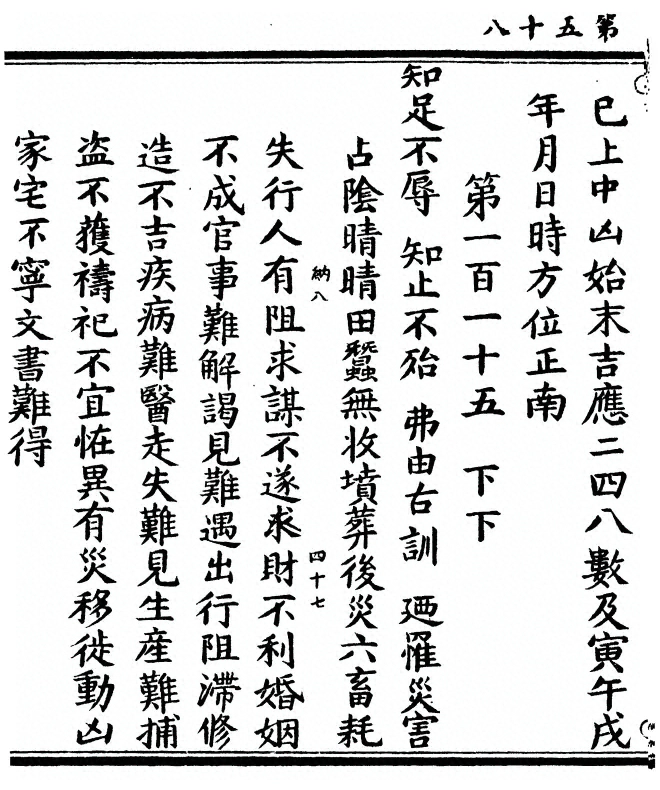 第五十八
已上中凶始末吉應二四八數及寅午戌
年月日時方位正南
第一百一十五 下下
知足不辱 知止不殆 弗由古訓 廼罹災害
占陰晴晴田蠶無收墳葬後災六畜耗
納八
四十七
失行人有阻求謀不遂求財不利婚姻
不成官事難解謁見難遇出行阻滯修
造不吉疾病難醫走失難見生產難捕
盜不獲禱祀不宜恠異有災移徙動凶
家宅不寧文書難得